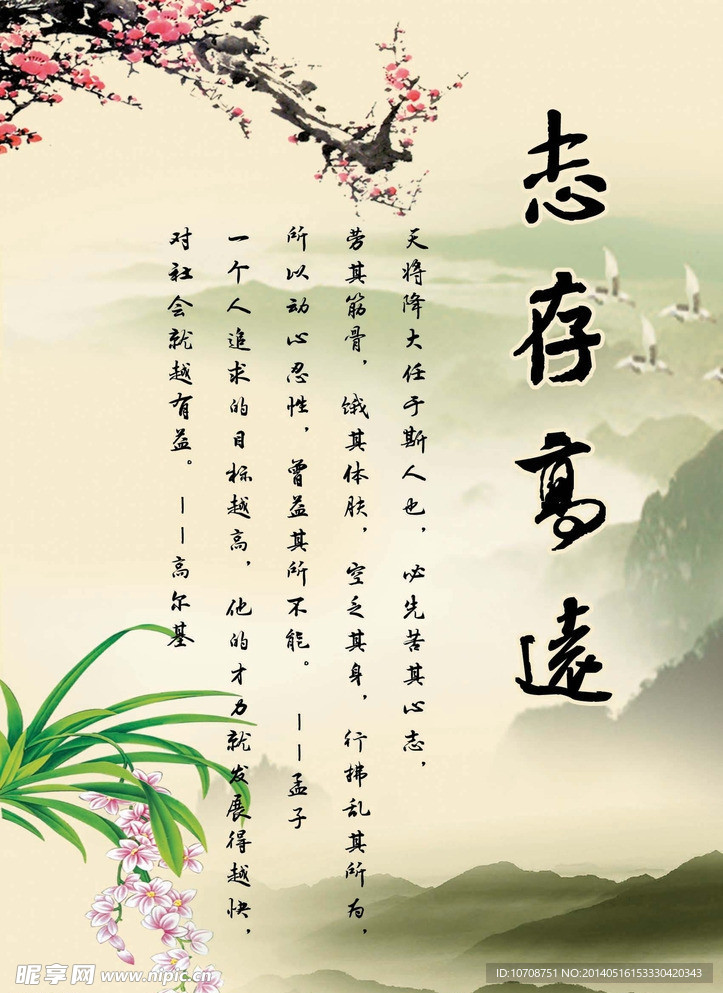 志存高遠
天将降大任于斯人也，必先苦其心志，
劳其筋骨，饿其体肤，空乏其身，行拂乱其所为，
所以动心忍性，曾益其所不能。——孟子
一个人追求的目标越高，他的才力就发展得越快，
对社会就越有益。——高尔基
昵享网 www.nipic.cn
ID:10708751 NO:20140516153330420343